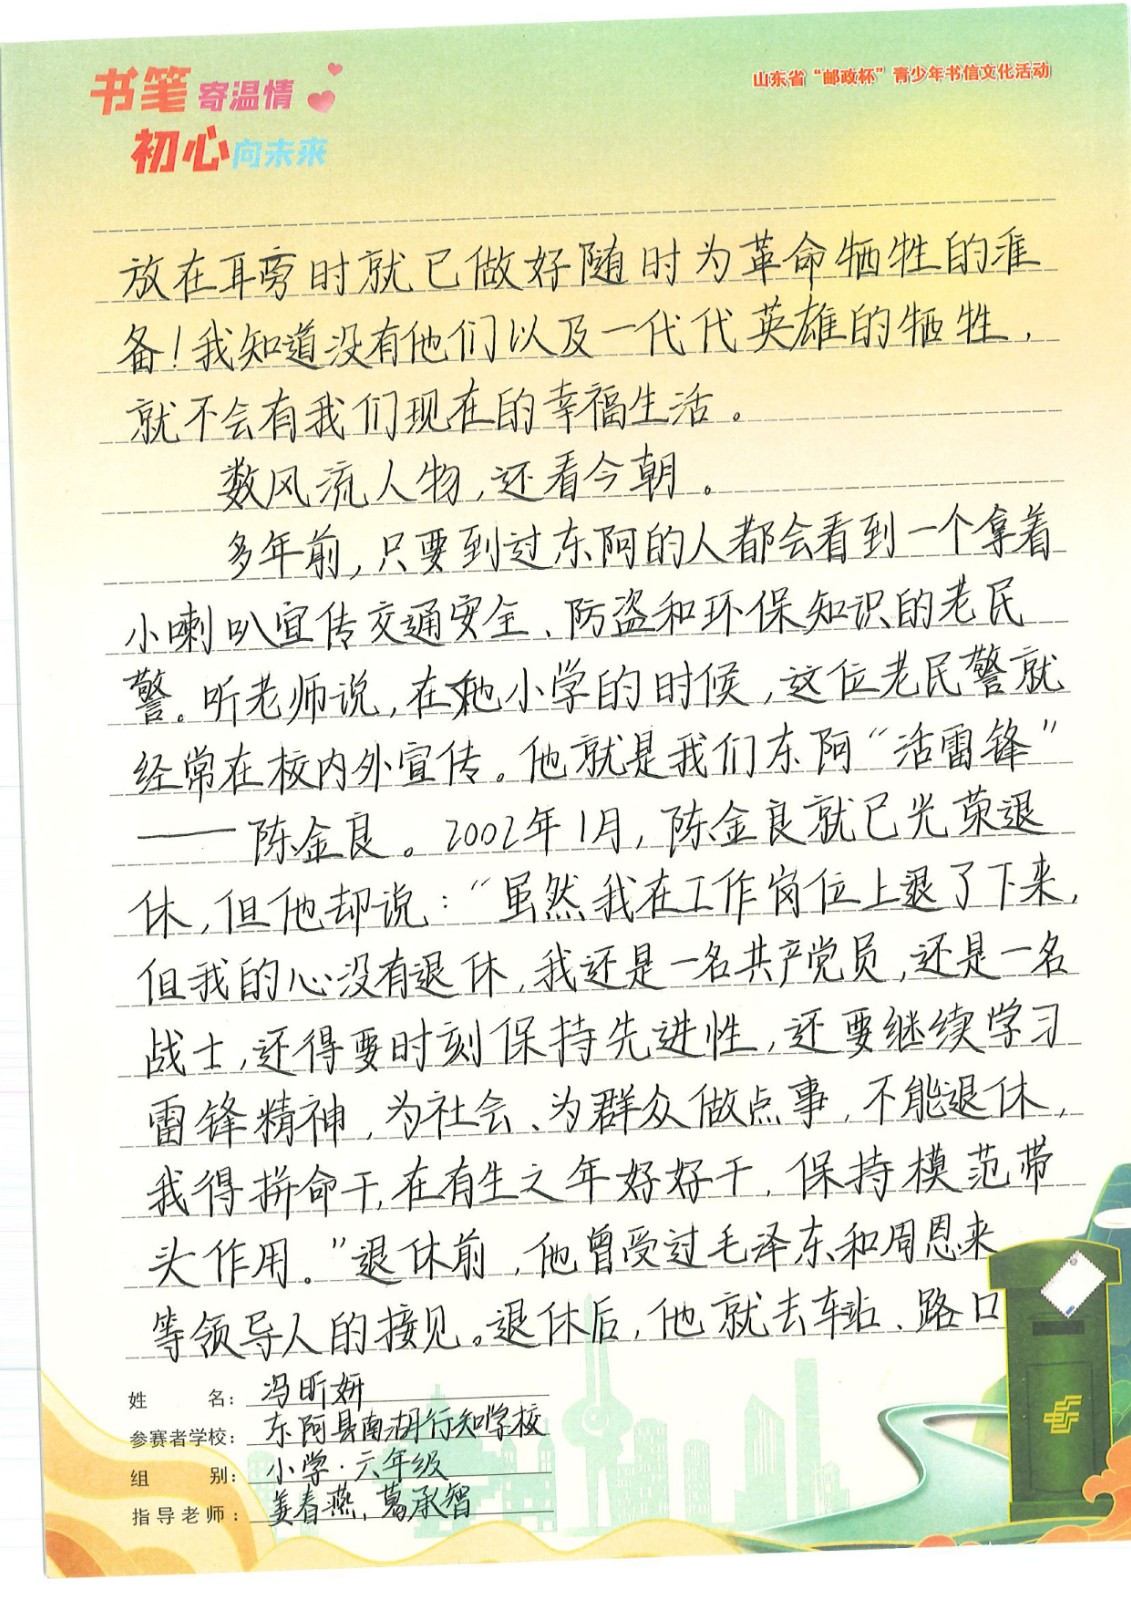 书笔寄温情
初心向未来
山东省“邮政杯”青少年书信文化活动
放在耳旁时就已做好随时为革命牺牲的准
备！我知道没有他们以及一代代英雄的牺牲，
就不会有我们现在的幸福生活。
数风流人物，还看今朝。
多年前，只要到过东阿的人都会看到一个拿着
小喇叭宣传交通安全、防盗和环保知识的老民
警。听老师说，在她小学的时候，这位老民警就
经常在校内外宣传。他就是我们东阿“活雷锋”
——陈金良。2002年1月，陈金良就已光荣退
休，但他却说：“虽然我在工作岗位上退了下来，
但我的心没有退休，我还是一名共产党员，还是一名
战士，还得要时刻保持先进性，还要继续学习
雷锋精神，为社会、为群众做点事，不能退休，
我得拼命干，在有生之年好好干，保持模范带
头作用。”退休前，他曾受过毛泽东和周恩来
等领导人的接见。退休后，他就去车站、路口
姓名：冯昕妍
参赛者学校：东阿县南湖行知学校
组别：小学·六年级
指导老师：姜春燕，葛承智